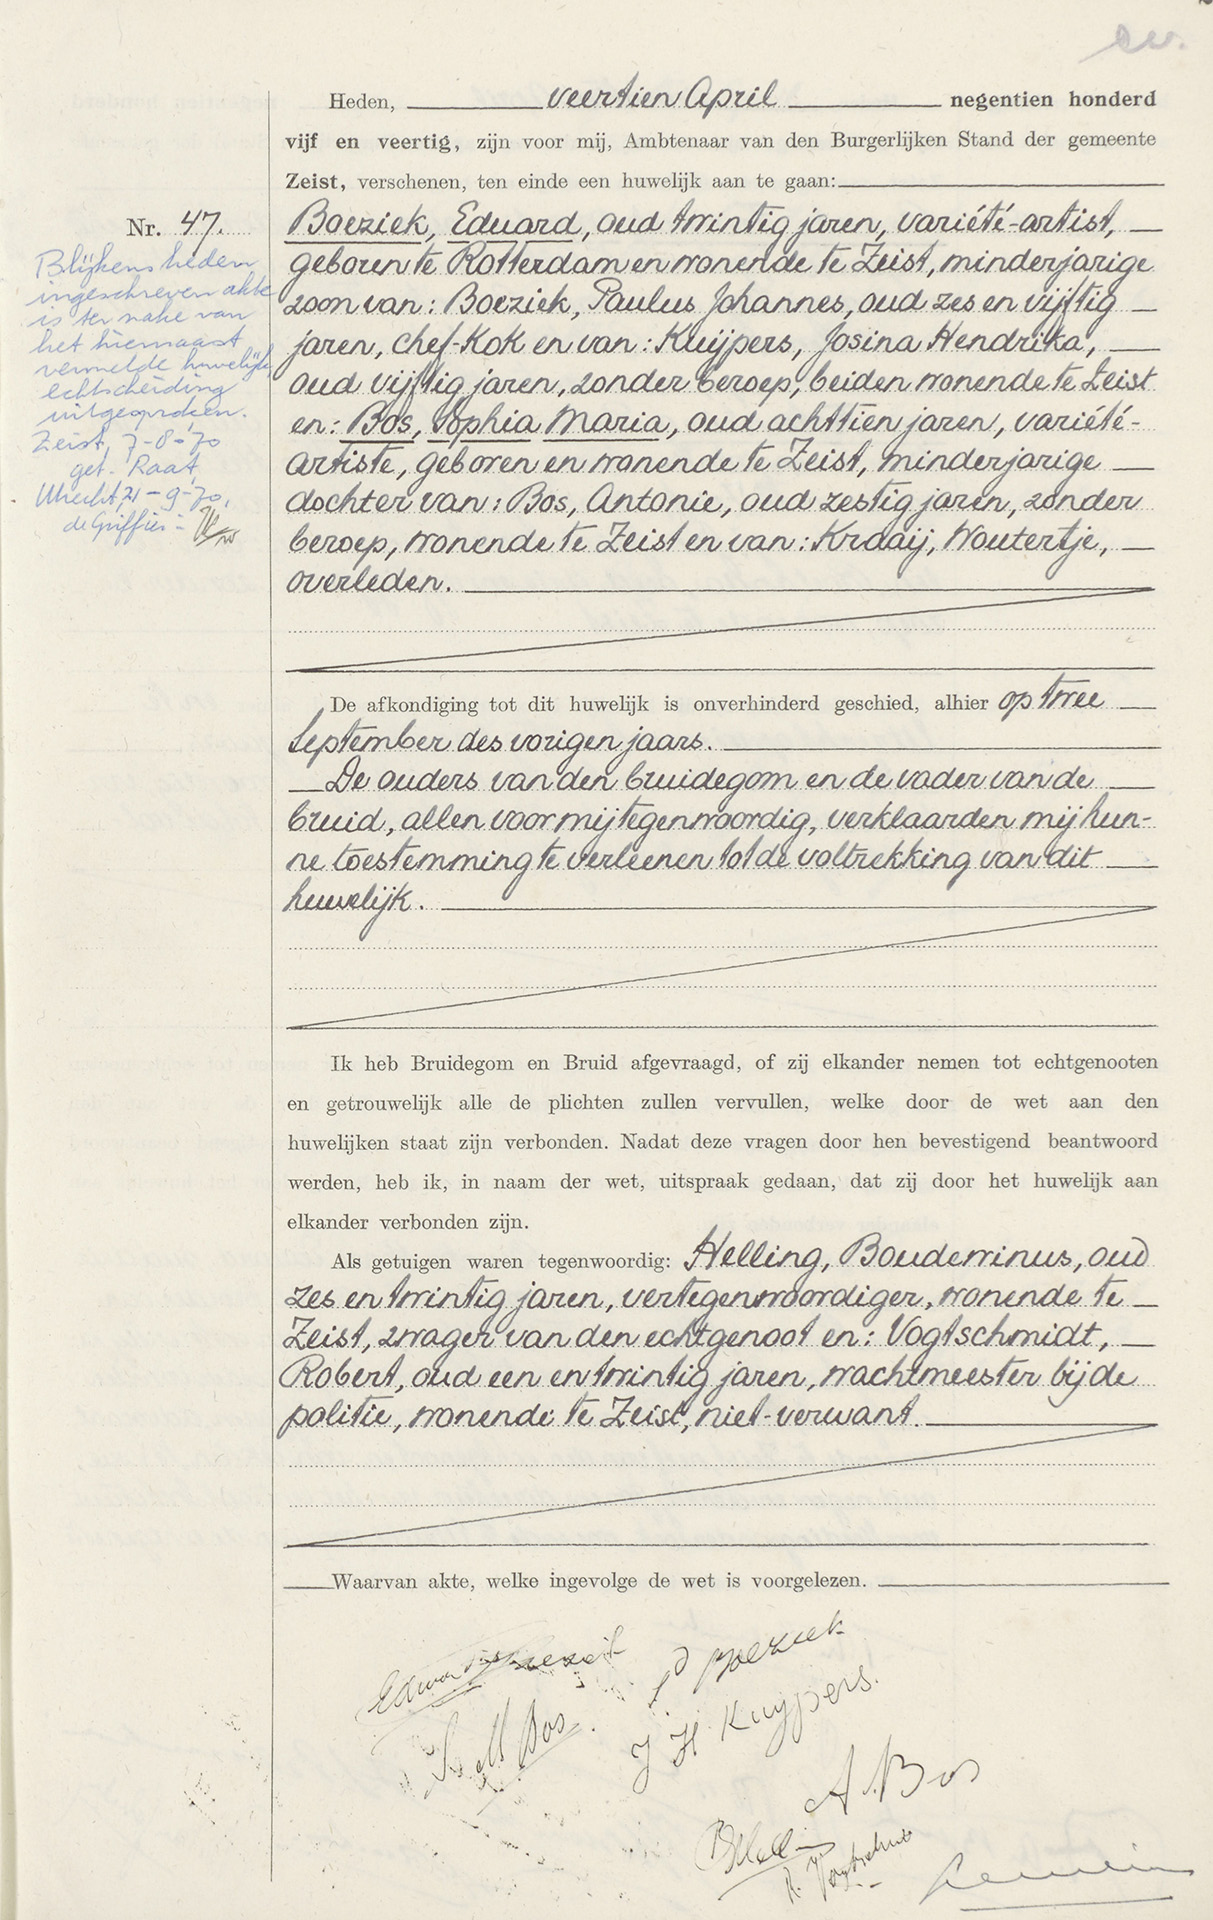 Heden, veertien April negentien honderd
vijf en veertig, zijn voor mij, Ambtenaar van den Burgerlijken Stand der gemeente
Zeist, verschenen, ten einde een huwelijk aan te gaan:
Nr. 47.
Blijkens heden
ingeschreven akte
is ter zake van
het hiernaast
vermelde huwelijk
echtscheiding
uitgesproken.
Zeist, 7-8-'70
get. Raat,
Utrecht, 21-9-70,
de Griffier -
Boeziek, Eduard, oud twintig jaren, variété-artist,
geboren te Rotterdam en wonende te Zeist, minderjarige
zoon van: Boeziek, Paulus Johannes, oud zes en vijftig
jaren, chef-kok en van: Kuijpers, Josina Hendrika,
oud vijftig jaren, zonder beroep, beiden wonende te Zeist
en: Bos, Sophia Maria, oud achttien jaren, variété-
artiste, geboren en wonende te Zeist, minderjarige
dochter van: Bos, Antonie, oud zestig jaren, zonder
beroep, wonende te Zeist en van: Kraaij, Woutertje,
overleden.
De afkondiging tot dit huwelijk is onverhinderd geschied, alhier op twee
September des vorigen jaars.
De ouders van den bruidegom en de vader van de
bruid, allen voor mij tegenwoordig, verklaarden mij hun-
ne toestemming te verleenen tot de voltrekking van dit
huwelijk.
Ik heb Bruidegom en Bruid afgevraagd, of zij elkander nemen tot echtgenooten
en getrouwelijk alle de plichten zullen vervullen, welke door de wet aan den
huwelijken staat zijn verbonden. Nadat deze vragen door hen bevestigend beantwoord
werden, heb ik, in naam der wet, uitspraak gedaan, dat zij door het huwelijk aan
elkander verbonden zijn.
Als getuigen waren tegenwoordig: Helling, Boudewinus, oud
zes en twintig jaren, vertegenwoordiger, wonende te
Zeist, zwager van den echtgenoot en: Vogtschmidt,
Robert, oud een en twintig jaren, wachtmeester bij de
politie, wonende te Zeist, niet-verwant.
Waarvan akte, welke ingevolge de wet is voorgelezen.
P Boeziek
S M Bos.
J H Kuypers.
A. Bos
B Helling
R. Vogtschmidt